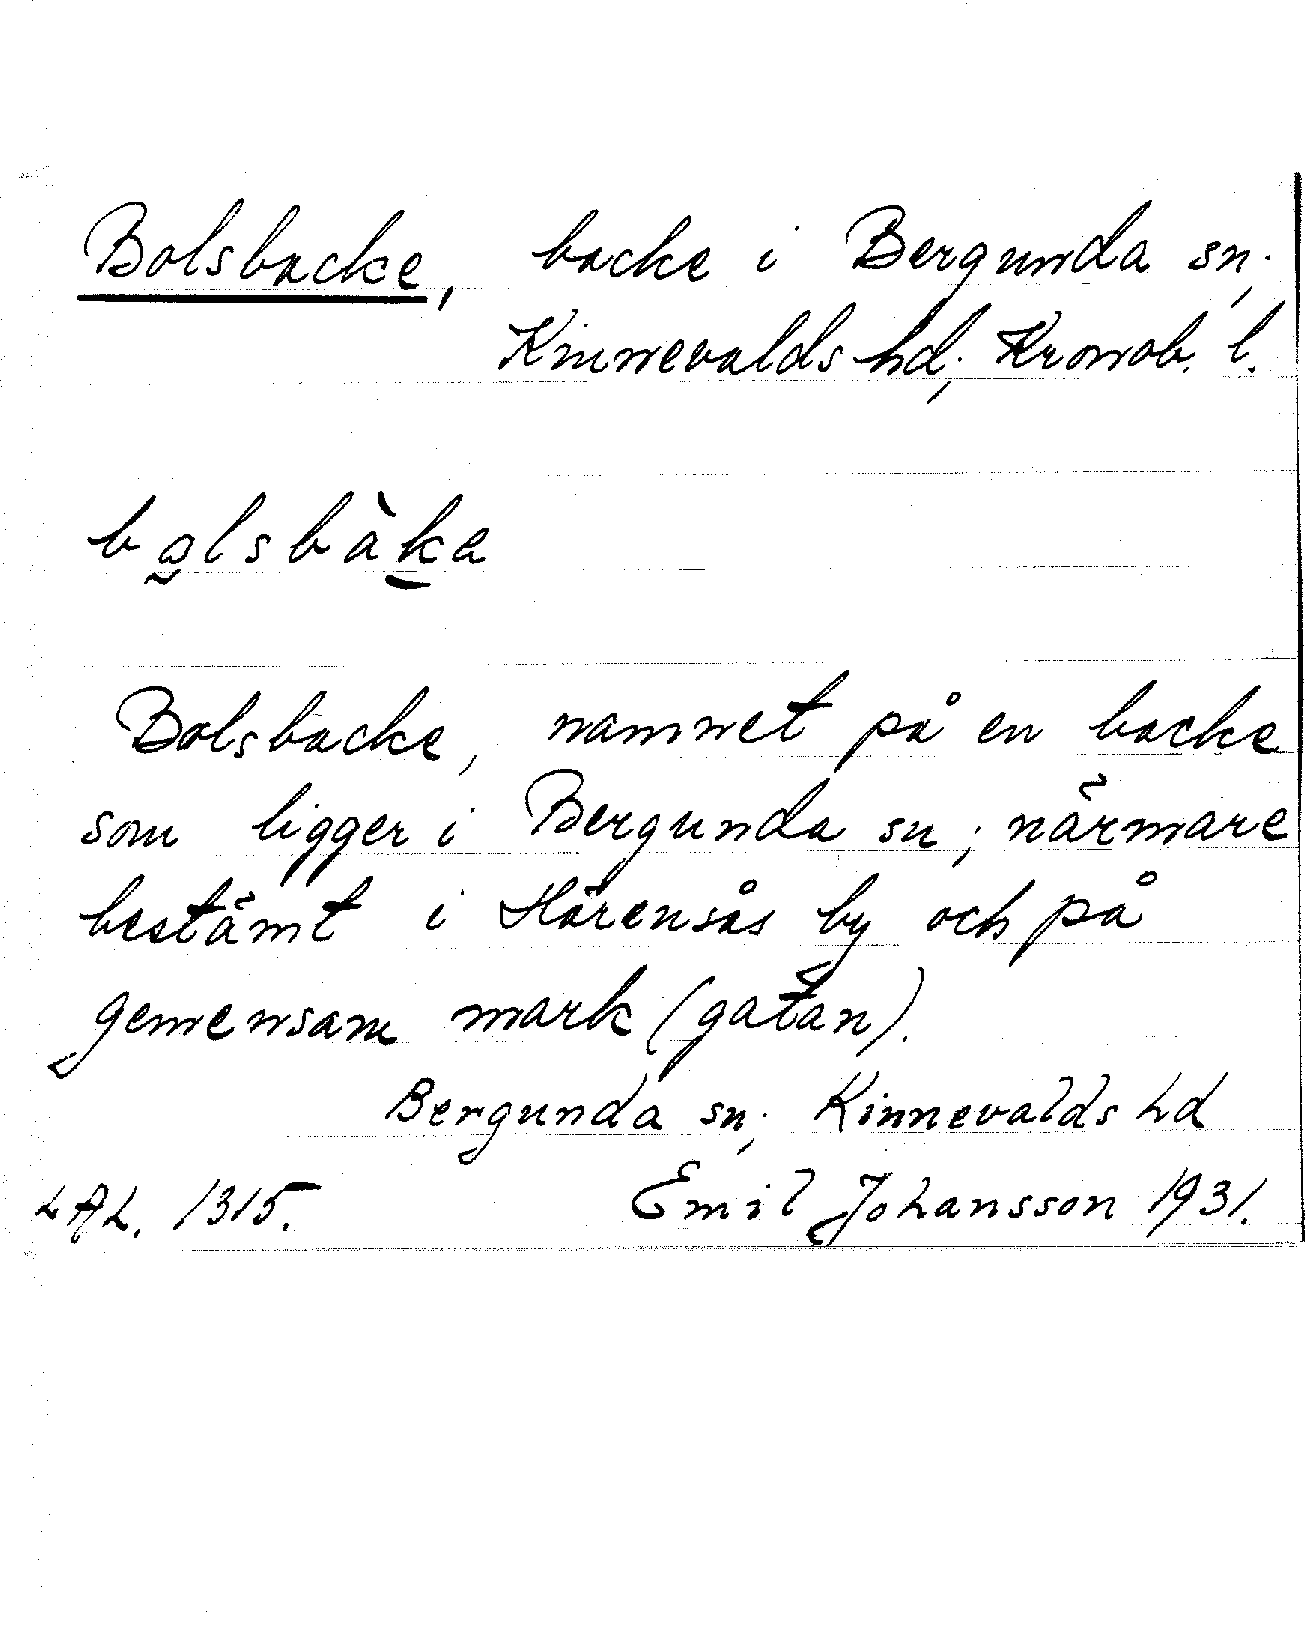 Bolsbacke, backe i Bergunda sn,
Kinnevalds hd, Kronob. l.
bo̰lsbàk̠a
Bolsbacke, namnet på en backe
som ligger i Bergunda sn, närmare
bestämt i Härensås by och på
gemensam mark (gatan).
Bergunda sn, Kinnevalds hd
LAL. 1315. Emil Johansson 1931.